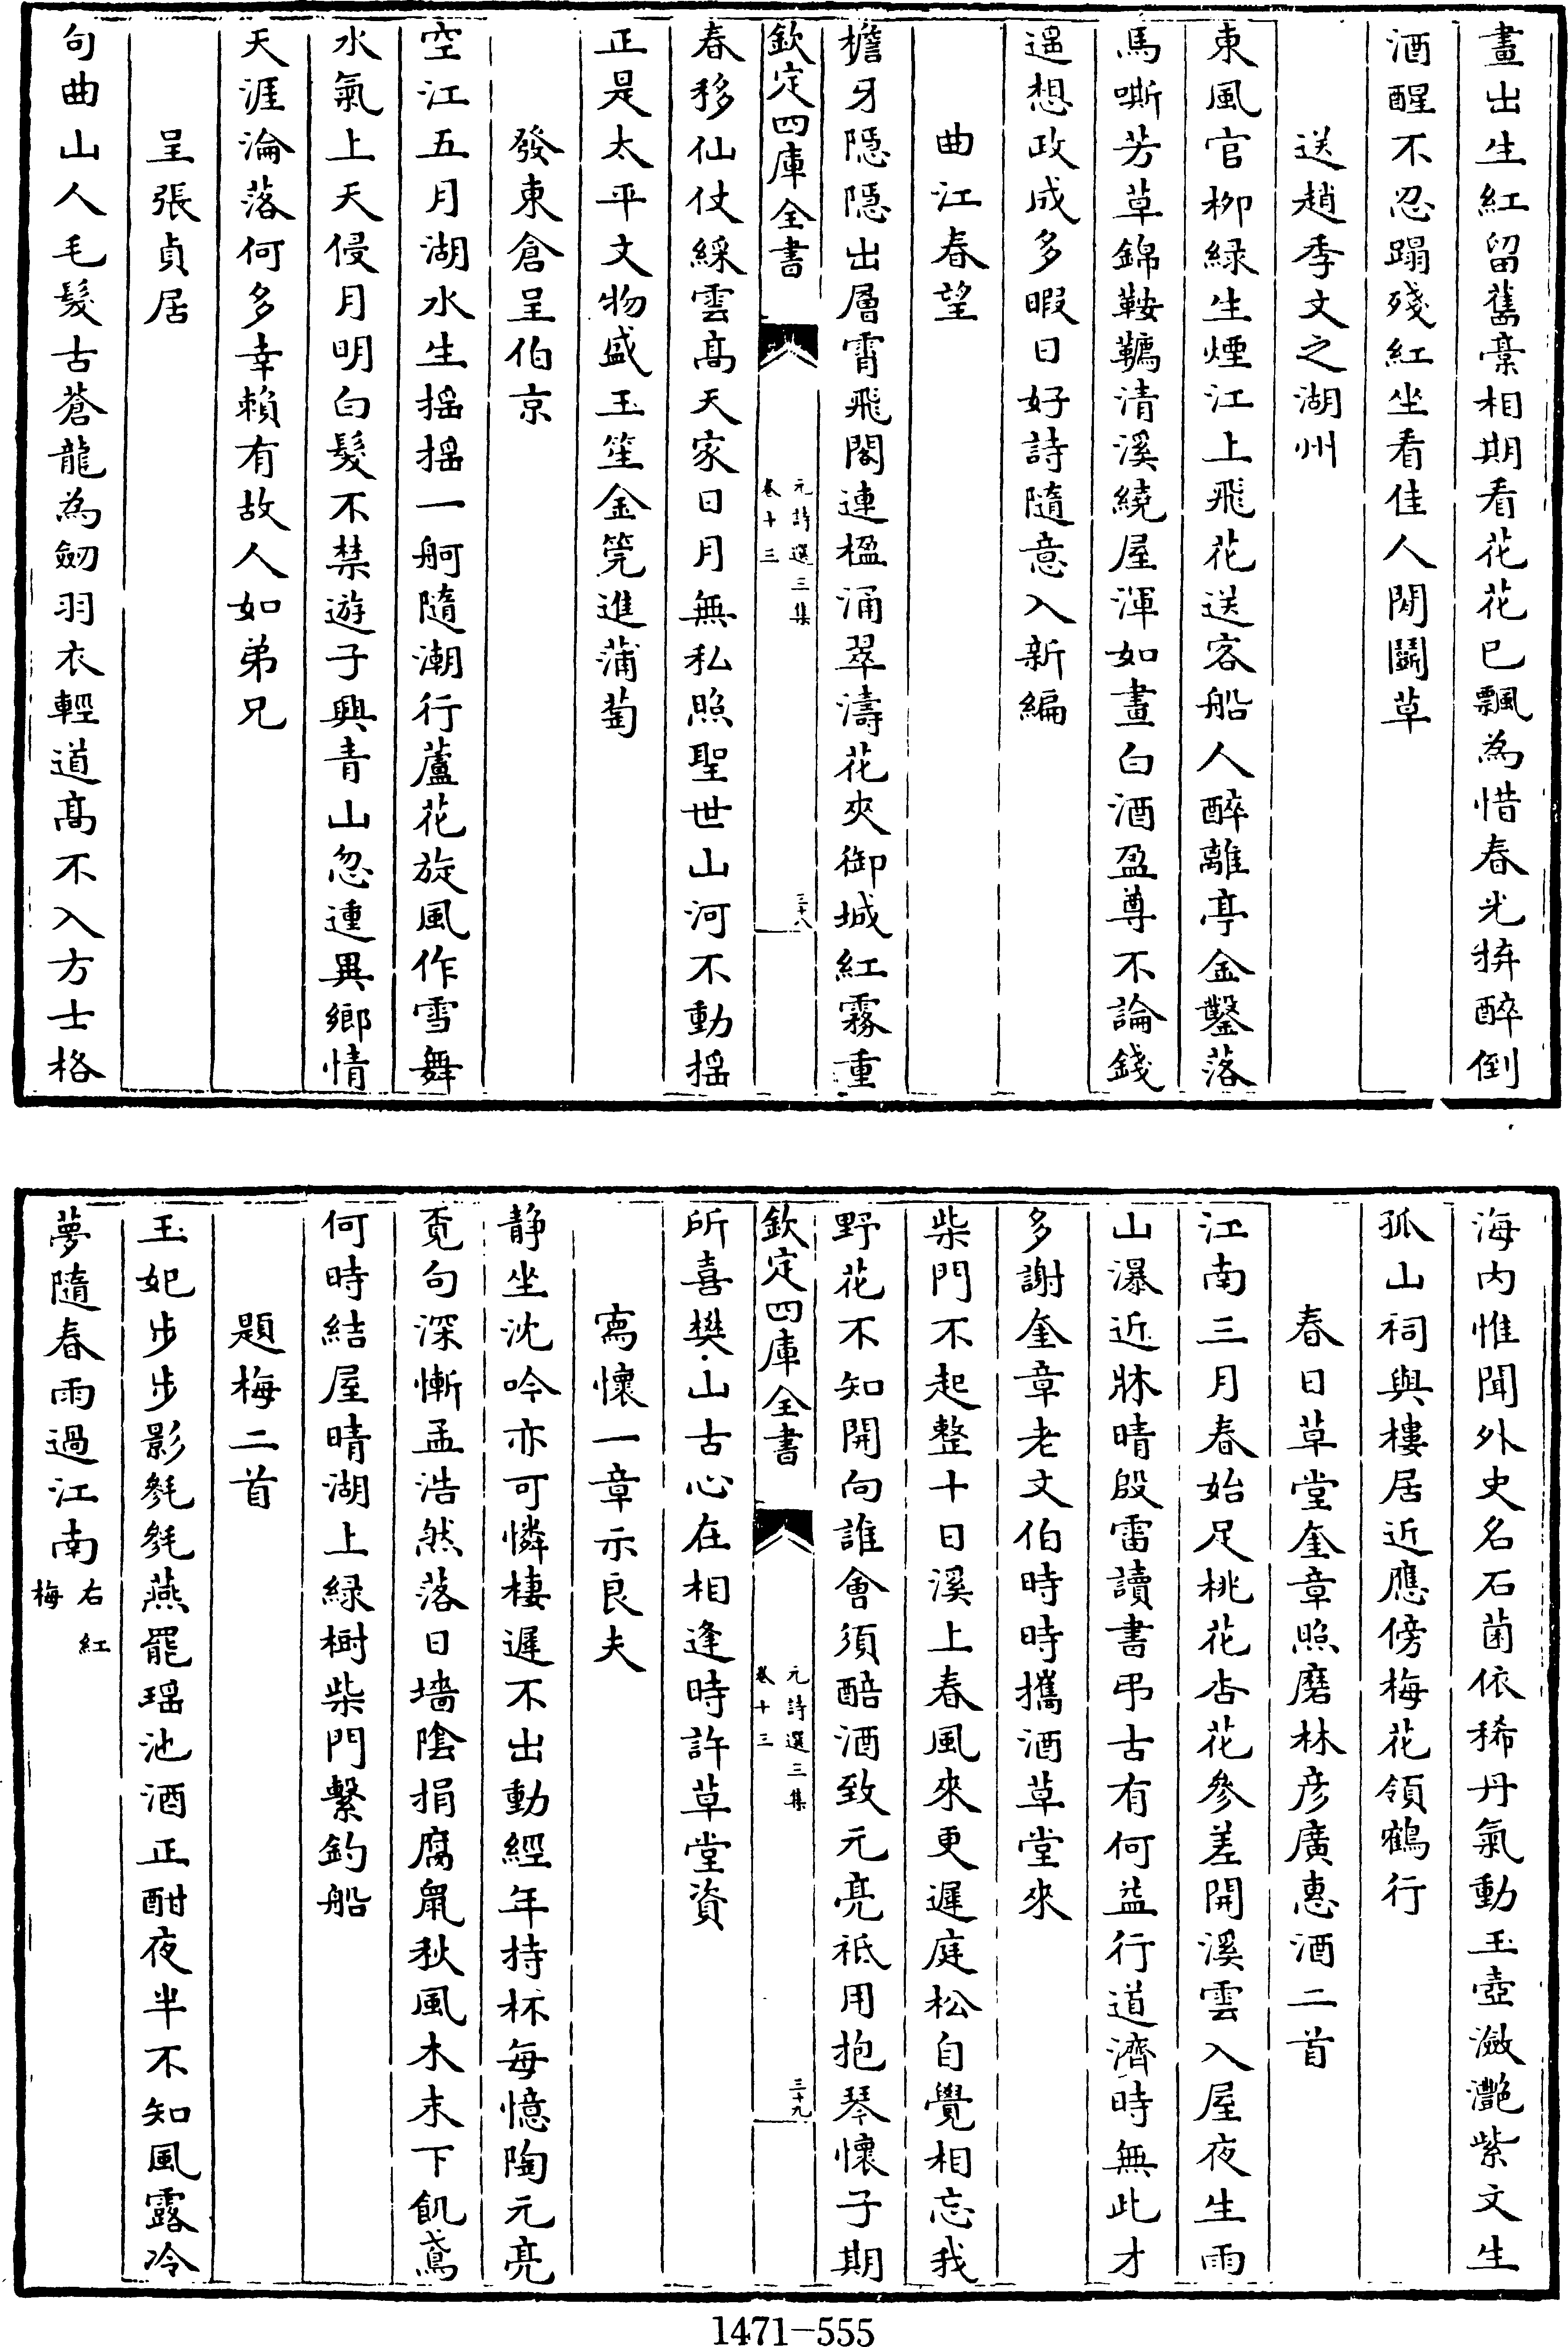 畫出生紅留舊稾相期看花花已飄為惜春光拚醉倒
酒醒不忍蹋殘紅坐看佳人閒鬭草
送趙季文之湖州
東風官栁緑生煙江上飛花送客船人醉離亭金鑿落
馬嘶芳草錦鞍韉清溪繞屋渾如畫白酒盈尊不論錢
遥想政成多暇日好詩隨意入新編
曲江春望
檐牙隱隱出層霄飛閣連楹涌翠濤花夾御城紅霧重
欽定四庫全書
元詩選三集
卷十三
三十八
春移仙仗綵雲高天家日月無私照聖世山河不動揺
正是太平文物盛玉笙金筦進蒲萄
發東倉呈伯京
空江五月湖水生揺揺一舸隨潮行蘆花旋風作雪舞
水氣上天侵月明白髮不禁遊子興青山忽連異鄉情
天涯淪落何多幸賴有故人如弟兄
呈張貞居
句曲山人毛髮古蒼龍為劒羽衣輕道髙不入方士格
海内惟聞外史名石菌依稀丹氣動玉壺瀲灔紫文生
孤山祠與樓居近應傍梅花領鶴行
春日草堂奎章照磨林彦廣惠酒二首
江南三月春始足桃花杏花參差開溪雲入屋夜生雨
山瀑近牀晴殷雷讀書弔古有何益行道濟時無此才
多謝奎章老文伯時時攜酒草堂來
柴門不起整十日溪上春風來更遲庭松自覺相忘我
野花不知開向誰會須醅酒致元亮祗用抱琴懷子期
欽定四庫全書
元詩選三集
卷十三
三十九
所喜樊山古心在相逢時許草堂資
寫懷一章示良夫
静坐沈吟亦可憐棲遲不出動經年持杯每憶陶元亮
覔句深慚孟浩然落日墻陰捐腐鼠秋風木末下飢鳶
何時結屋晴湖上緑樹柴門繫釣船
題梅二首
玉妃步步影毿毿燕罷瑶池酒正酣夜半不知風露冷
夢隨春雨過江南右紅梅
1471-555